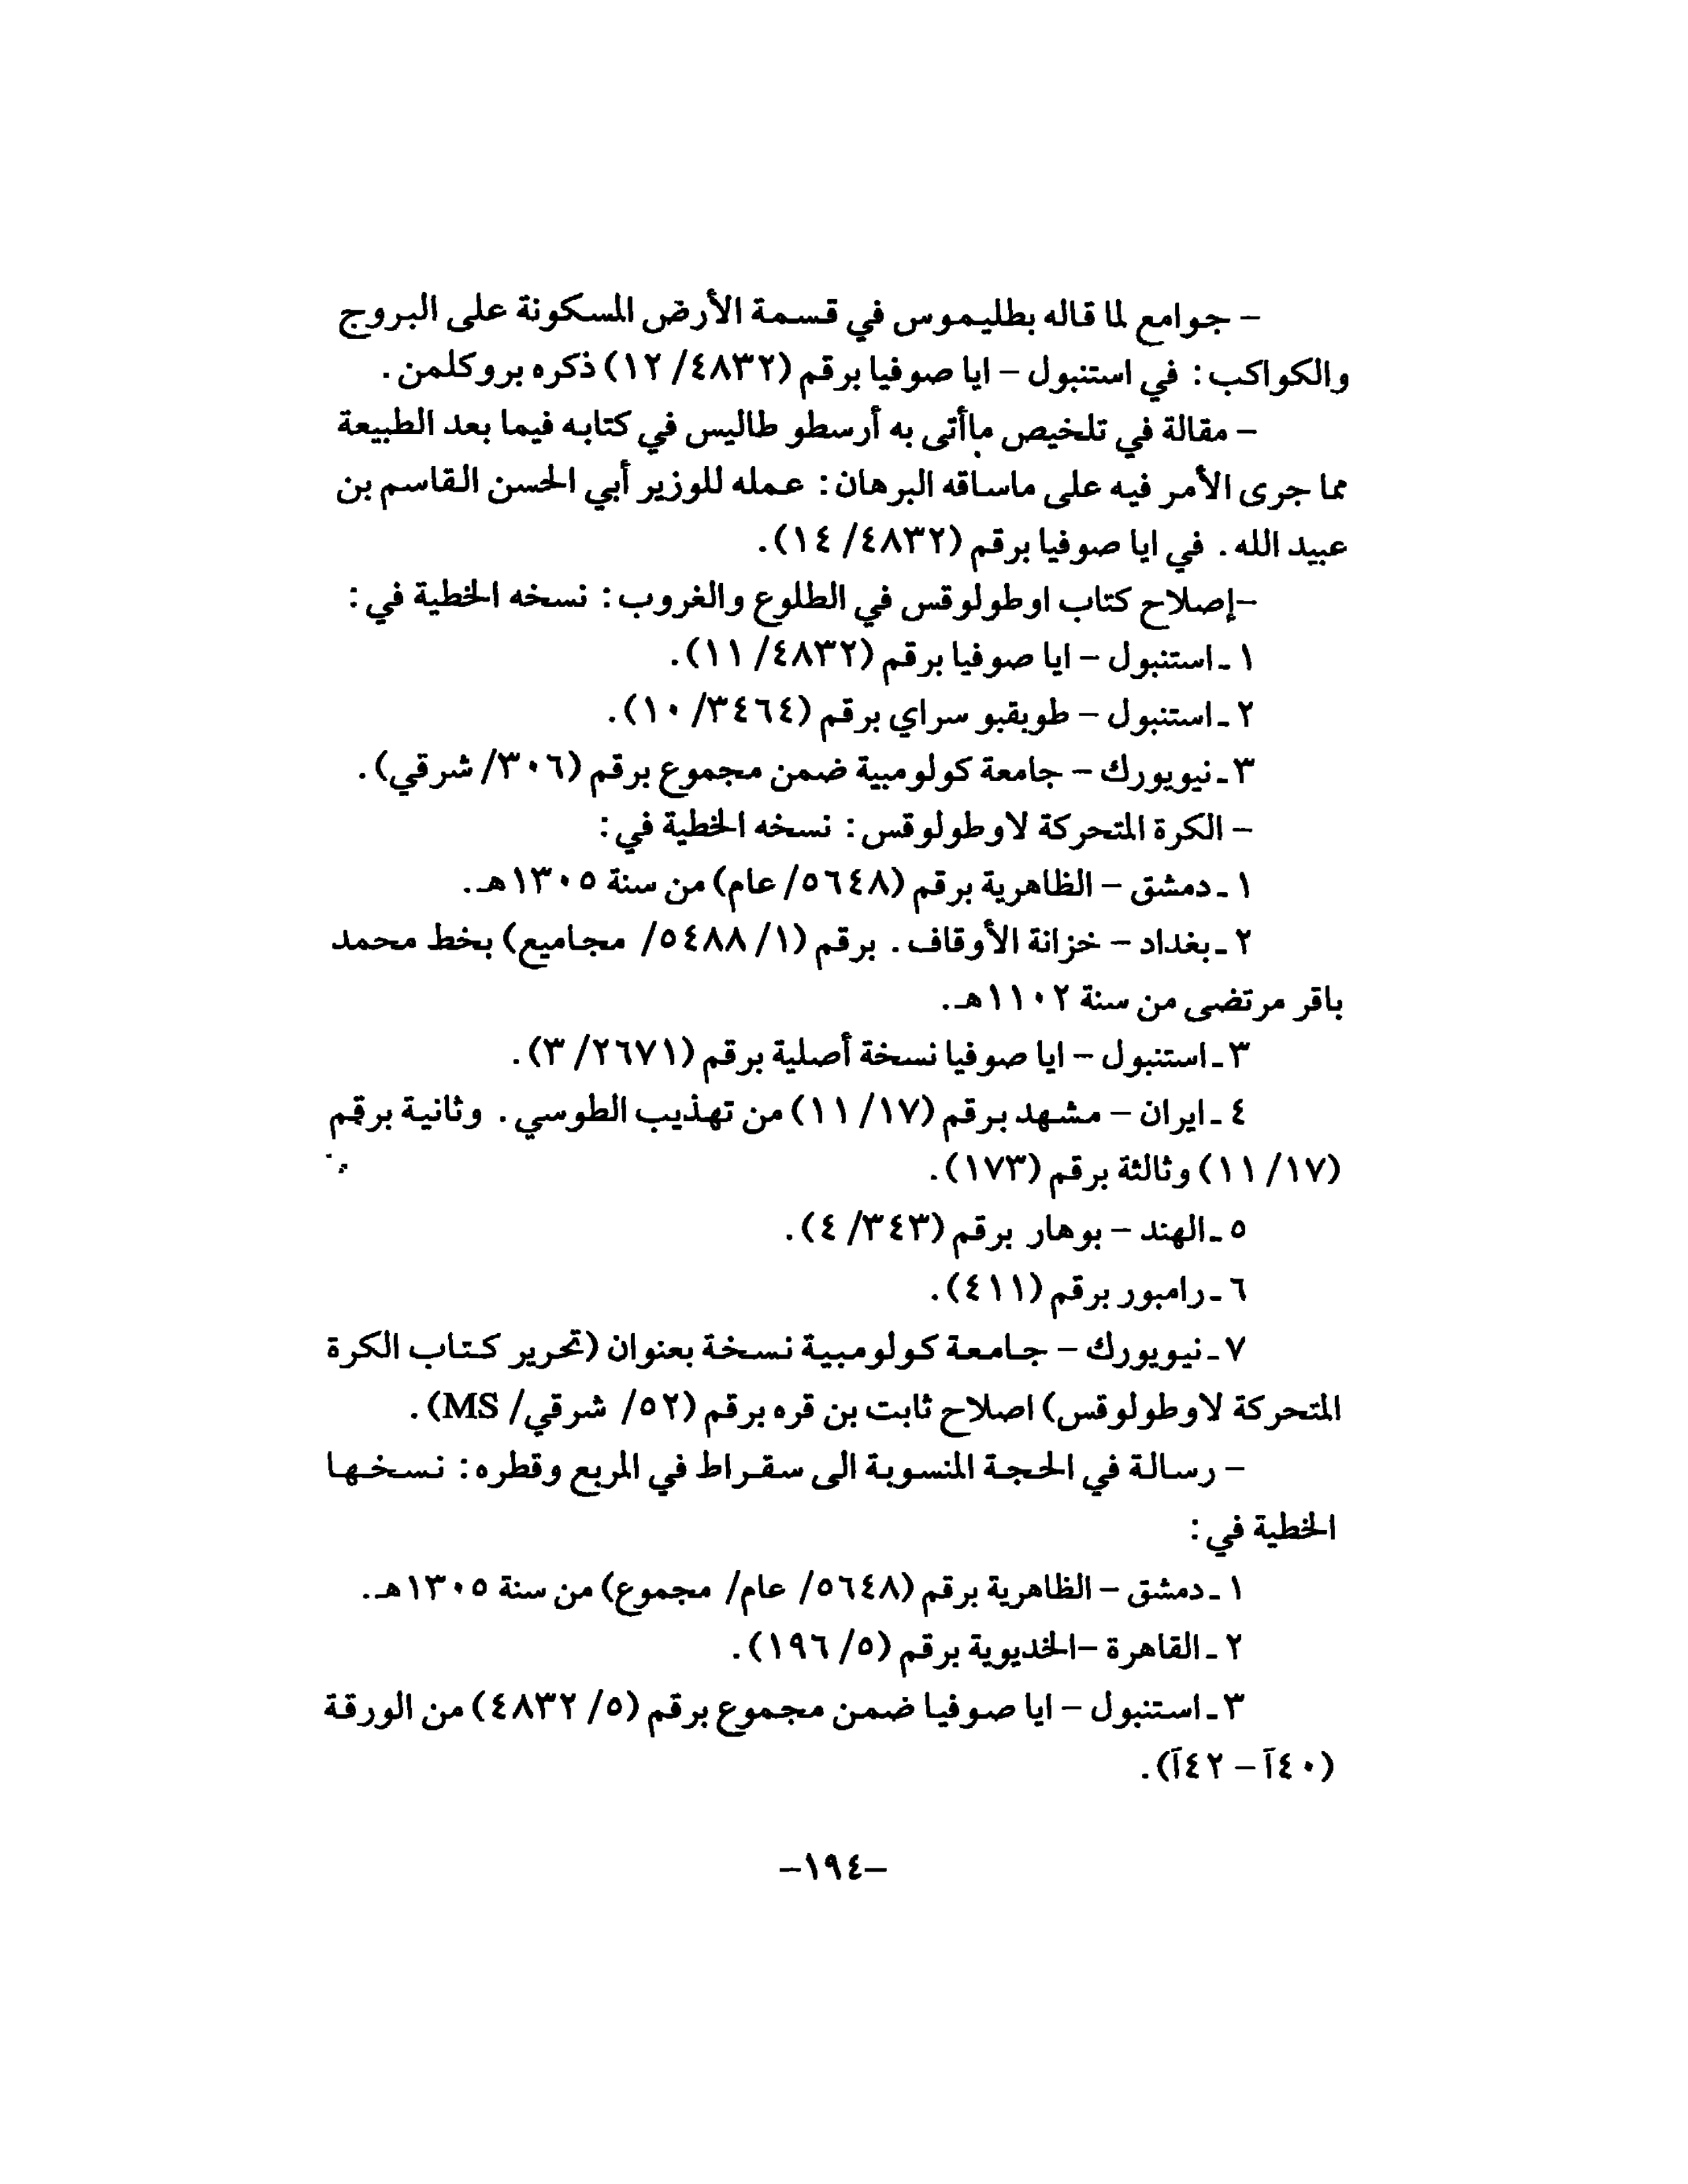 – جوامع لما قاله بطليموس في قسمة الأرض المسكونة على البروج
والكواكب : في استنبول – ايا صوفيا برقم (٤٨٣٢/ ١٢) ذكره بروكلمن .
– مقالة في تلخيص ماأتى به أرسطو طاليس في كتابه فيما بعد الطبيعة
مما جرى الأمر فيه على ماساقه البرهان : عمله للوزير أبي الحسن القاسم بن
عبيد الله . في ايا صوفيا برقم (٤٨٣٢/ ١٤).
–إصلاح كتاب اوطولوقس في الطلوع والغروب : نسخه الخطية في :
١ ـ استنبول – ايا صوفيا برقم (٤٨٣٢/ ١١).
٢ ـ استنبول – طوبقبو سراي برقم (٣٤٦٤/ ١٠).
٣ ـ نيويورك – جامعة كولومبية ضمن مجموع برقم (٣٠٦/ شرقي) .
– الكرة المتحركة لاوطولوقس : نسخه الخطية في :
١ ـ دمشق – الظاهرية برقم (٥٦٤٨/ عام) من سنة ١٣٠٥هـ.
٢ ـ بغداد – خزانة الأوقاف . برقم (١/ ٥٤٨٨/ مجاميع) بخط محمد
باقر مرتضى من سنة ١١٠٢هـ.
٣ ـ استنبول – ايا صوفيا نسخة أصلية برقم (٢٦٧١/ ٣).
٤ ـ ايران – مشهد برقم (١٧/ ١١) من تهذيب الطوسي . وثانية برقم
(١٧/ ١١) وثالثة برقم (١٧٣).
٥ ـ الهند – بوهار برقم (٣٤٣/ ٤).
٦ ـ رامبور برقم (٤١١).
٧ ـ نيويورك – جامعة كولومبية نسخة بعنوان (تحرير كتاب الكرة
المتحركة لاوطولوقس) اصلاح ثابت بن قره برقم (٥٢/ شرقي/ MS).
– رسالة في الحجة المنسوبة الى سقراط في المربع وقطره : نسخها
الخطية في :
١ ـ دمشق – الظاهرية برقم (٥٦٤٨/ عام/ مجموع) من سنة ١٣٠٥هـ.
٢ ـ القاهرة –الخديوية برقم (٥/ ١٩٦).
٣ ـ استنبول – ايا صوفيا ضمن مجموع برقم (٥/ ٤٨٣٢) من الورقة
(٤٠آ – ٤٢آ).
–١٩٤–